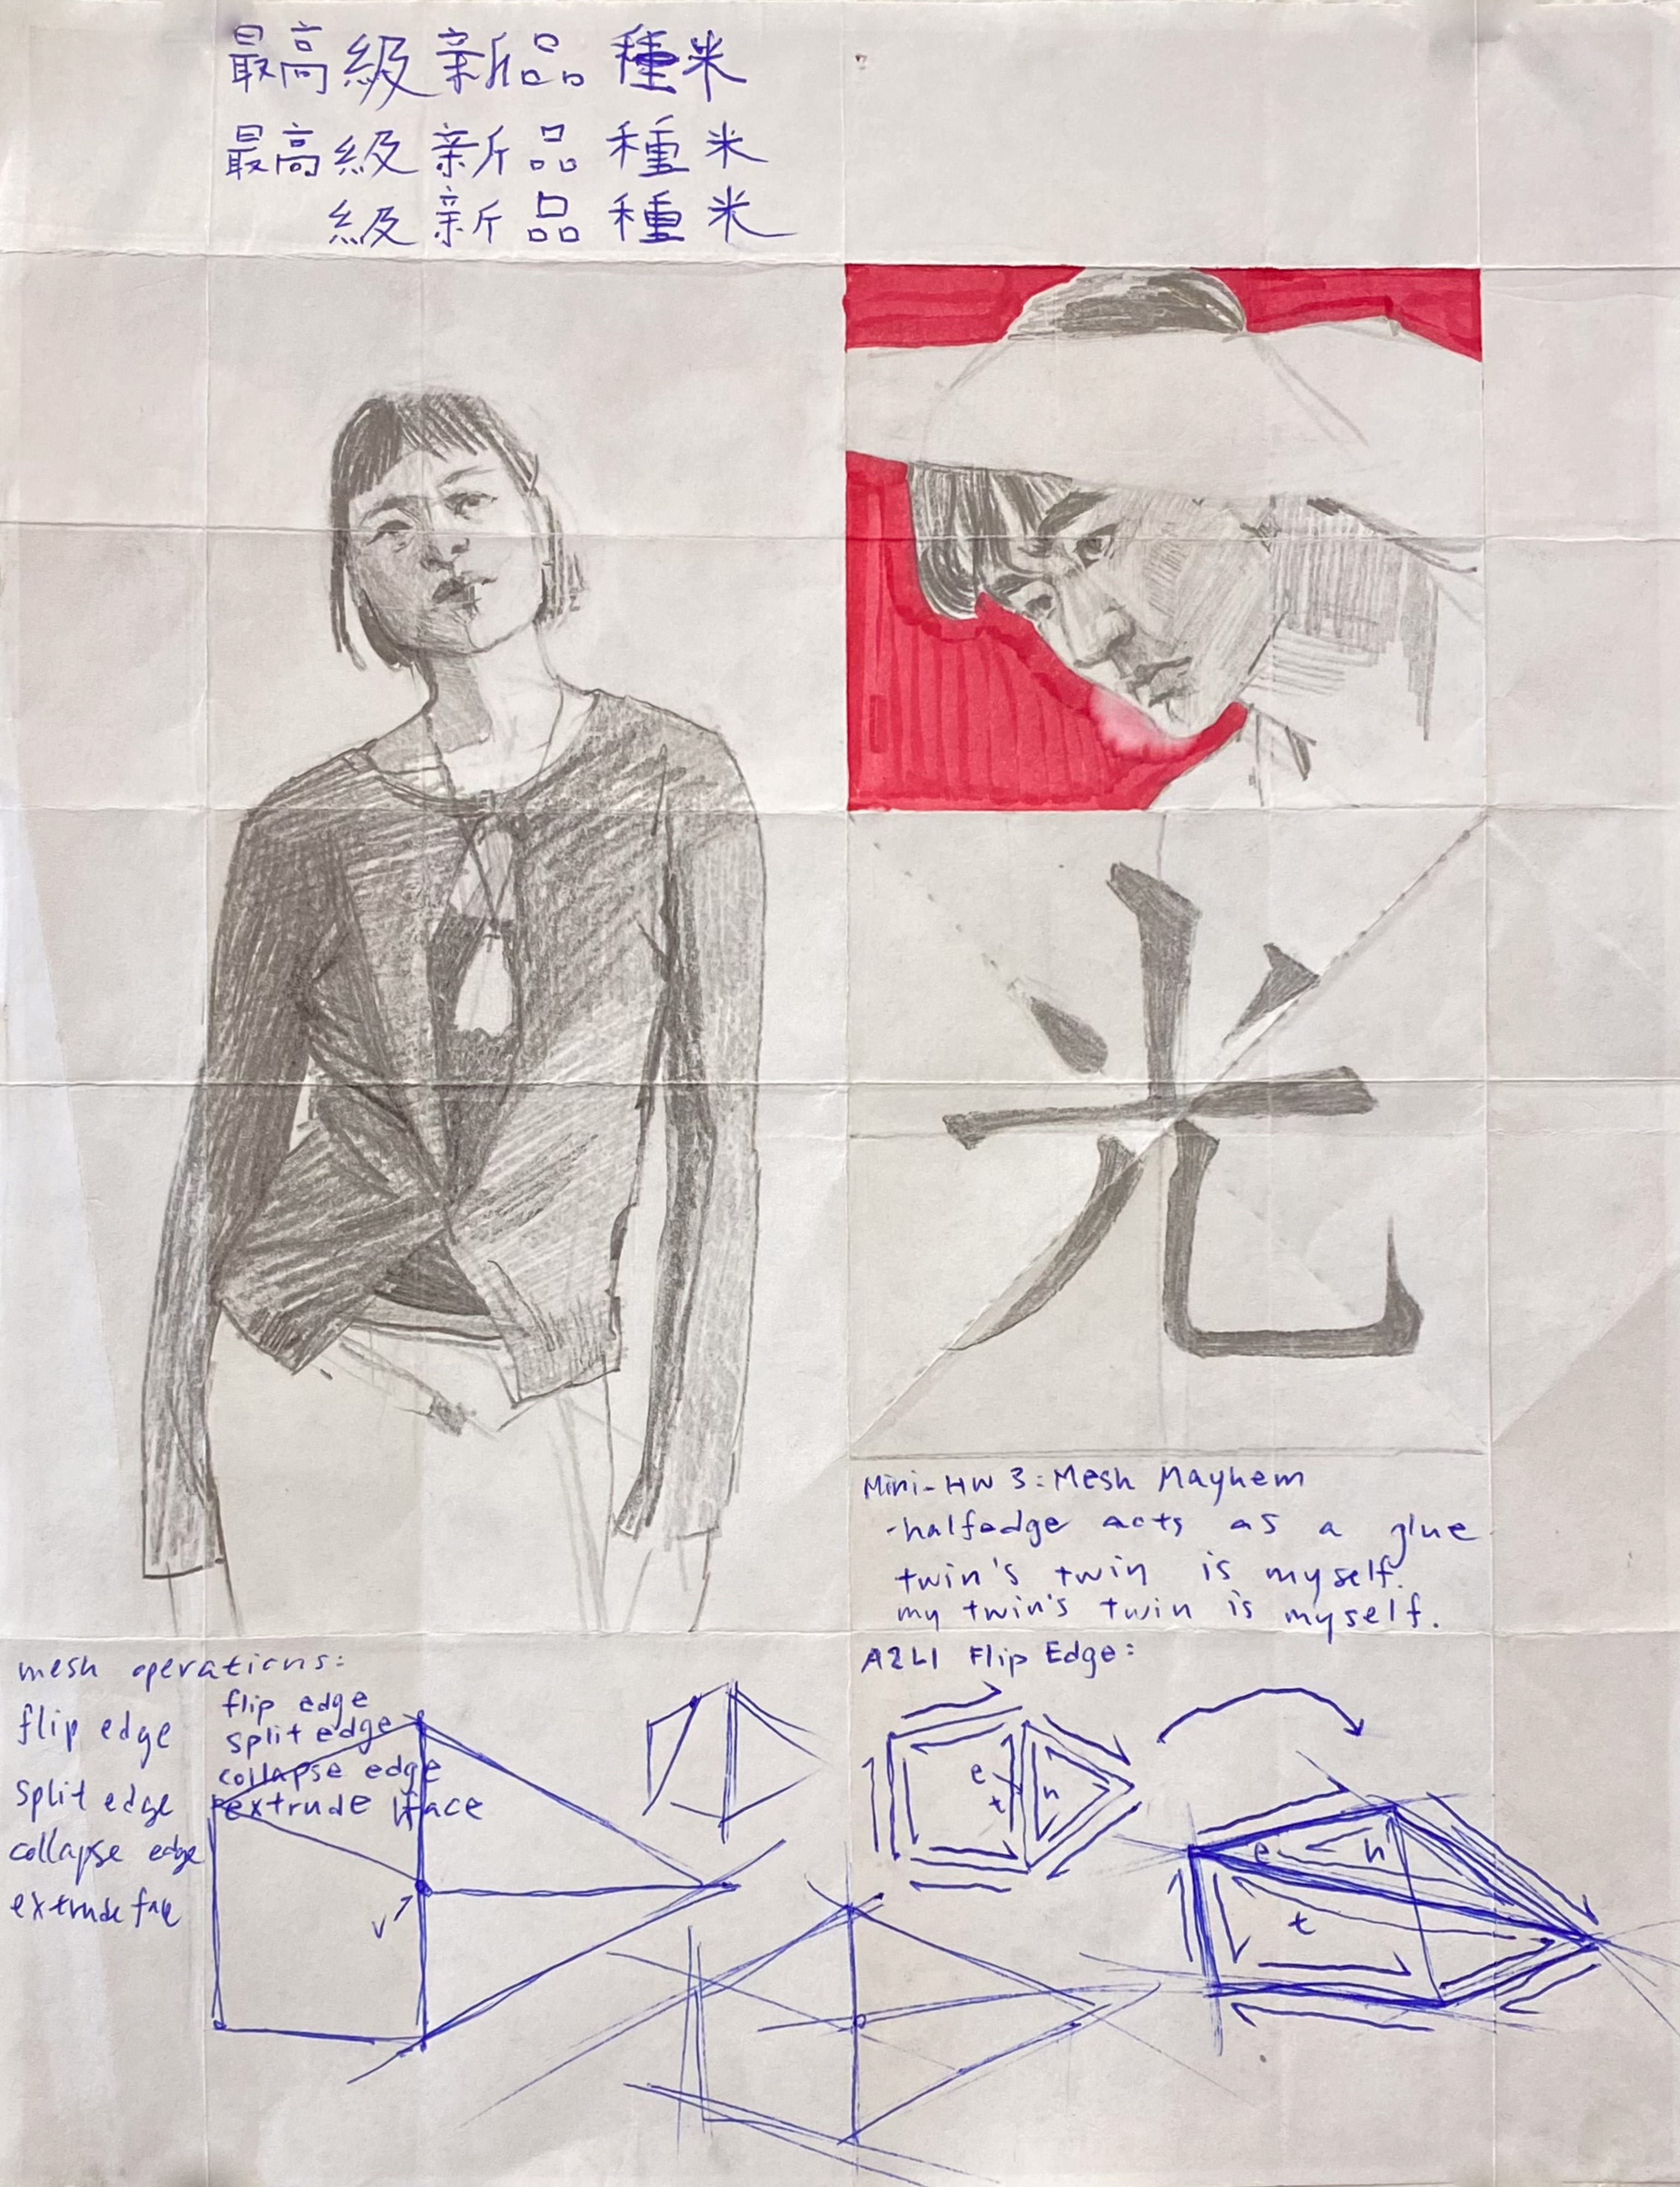 最高級新品種米
最高級新品種米
級新品種米
光
Mini-HW 3: Mesh Mayhem
-halfedge acts as a glue
twin's twin is myself.
my twin's twin is myself.
mesh operations:
flip edge
split edge
collapse edge
extrude face
flip edge
split edge
collapse edge
extrude face
v
A2L1 Flip Edge:
e
t
h
e
h
t